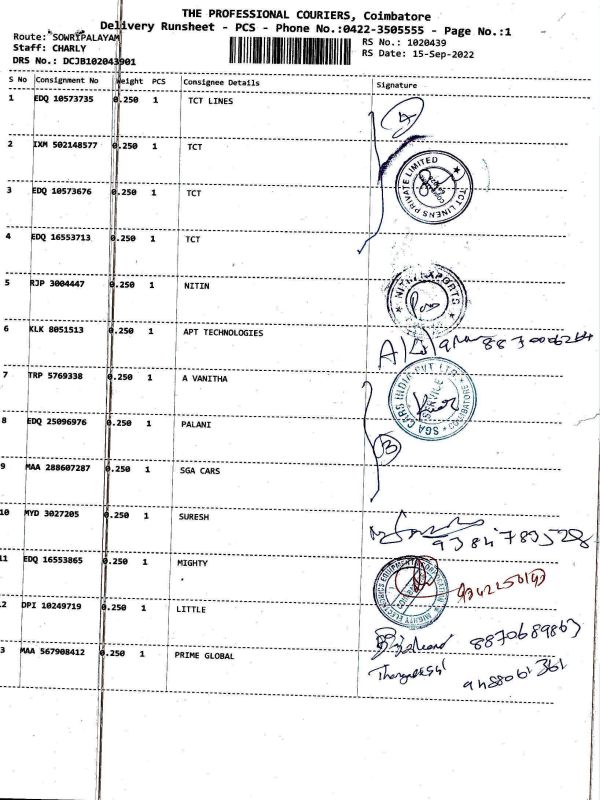 THE PROFESSIONAL COURIERS, Coimbatore
Delivery Runsheet - PCS - Phone No.:0422-3505555 - Page No.:1
Route: SOWRIPALAYAM
Staff: CHARLY
DRS No.: DCJB102043901
RS No.: 1020439
RS Date: 15-Sep-2022
S No Consignment No Weight PCS Consignee Details Signature
1 EDQ 10573735 0.250 1 TCT LINES
2 IXM 502148577 0.250 1 TCT
3 EDQ 10573676 0.250 1 TCT
TCT LINENS PRIVATE LIMITED
4 EDQ 16553713 0.250 1 TCT
5 RJP 3004447 0.250 1 NITIN
NITIN EXPORTS
6 KLK 8051513 0.250 1 APT TECHNOLOGIES
7 TRP 5769338 0.250 1 A VANITHA
SGA CARS INDIA PVT LTD
SERVICE
COIMBATORE
8 EDQ 25096976 0.250 1 PALANI
9 MAA 288607287 0.250 1 SGA CARS
10 MYD 3027205 0.250 1 SURESH
11 EDQ 16553865 0.250 1 MIGHTY
MIGHTY ELECTRONICS EQUIPMENTS CORPORATION
2 DPI 10249719 0.250 1 LITTLE
8870689863
3 MAA 567908412 0.250 1 PRIME GLOBAL
9488061361